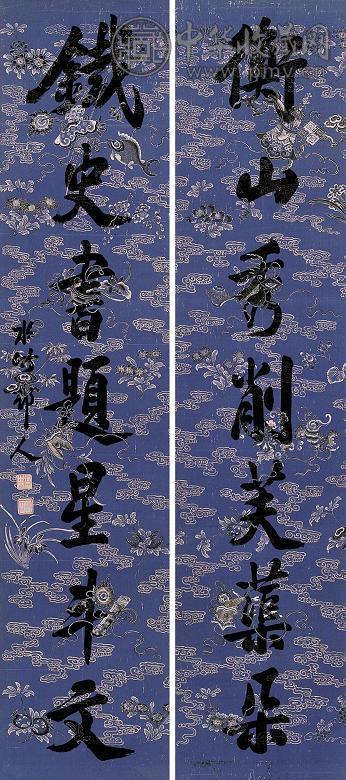 衡山秀削芙蕖朵
鐵史書題星斗文
水竹邨人
中华收藏网